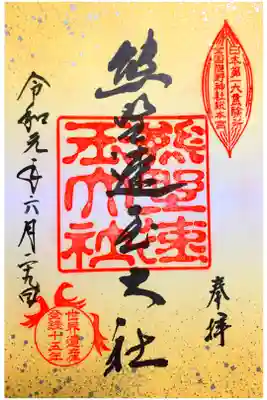 日本第一大霊験所
全国熊野神社総本宮
奉拝
熊野速玉大社
熊野速
玉大社
令和元年六月
世界遺産
登録十五年